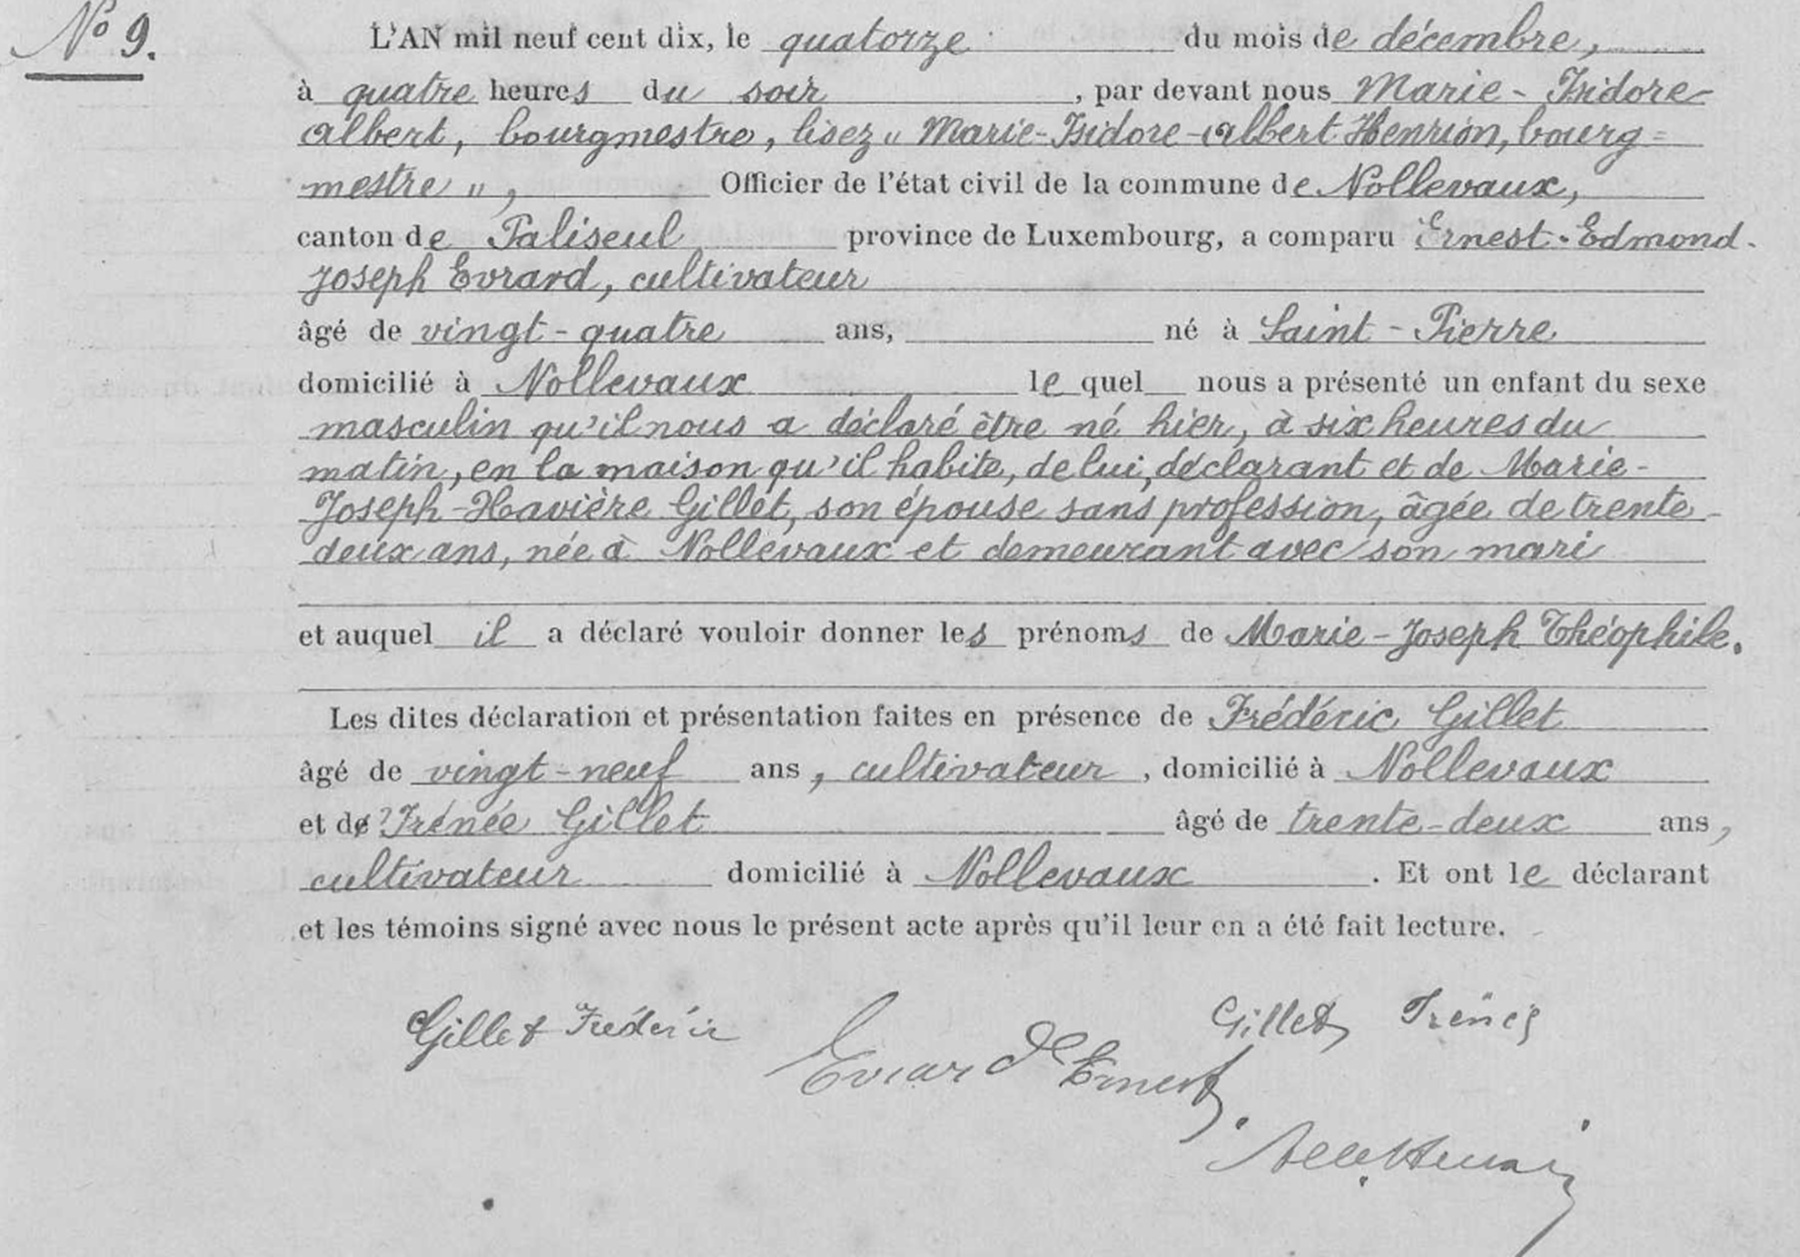 N° 9.
L'AN mil neuf cent dix, le quatorze du mois de décembre,
à quatre heures du soir, par devant nous Marie-Isidore-
Albert, bourgmestre, lisez „ Marie-Isidore-Albert Henrion, bourg=
mestre „, Officier de l'état civil de la commune de Nollevaux,
canton de Paliseul province de Luxembourg, a comparu Ernest-Edmond-
Joseph Evrard, cultivateur
âgé de vingt-quatre ans, né à Saint-Pierre
domicilié à Nollevaux lequel nous a présenté un enfant du sexe
masculin qu'il nous a déclaré être né hier, à six heures du
matin, en la maison qu'il habite, de lui, déclarant et de Marie-
Joseph-Havière Gillet, son épouse sans profession, âgée de trente-
deux ans, née à Nollevaux et demeurant avec son mari
et auquel il a déclaré vouloir donner les prénoms de Marie-Joseph Théophile.
Les dites déclaration et présentation faites en présence de Frédéric Gillet
âgé de vingt-neuf ans, cultivateur, domicilié à Nollevaux
et de Irénée Gillet âgé de trente-deux ans,
cultivateur domicilié à Nollevaux. Et ont le déclarant
et les témoins signé avec nous le présent acte après qu'il leur en a été fait lecture.
Gillet Fréderic
Gillet Irénée
Evrard Ernest